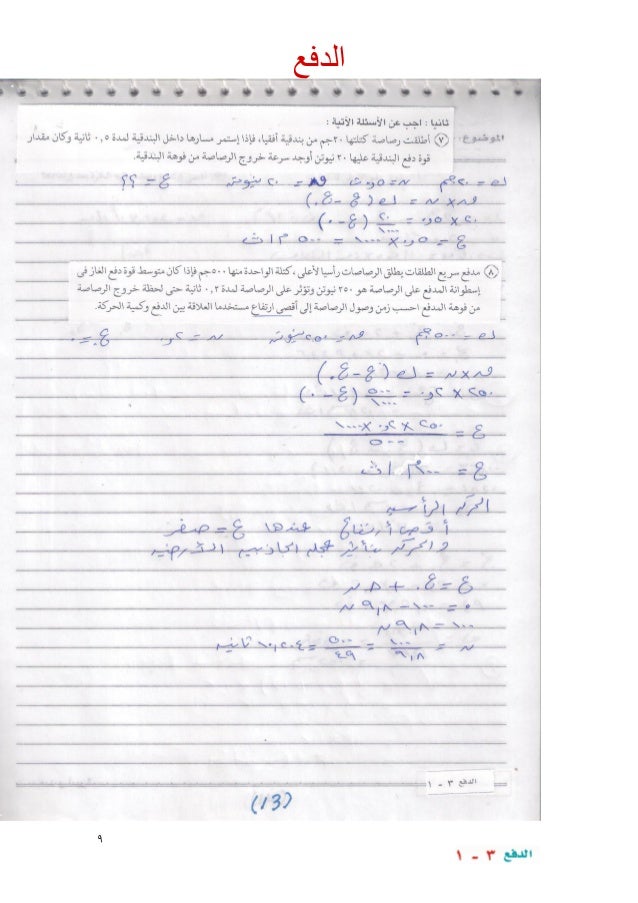 الدفع
ثانيا : اجب عن الأسئلة الآتية :
الموضوع:
٧ أطلقت رصاصة كتلتها ٢٠جم من بندقية أفقيا، فإذا إستمر مسارها داخل البندقية لمدة ٠,٥ ثانية وكان مقدار
قوة دفع البندقية عليها ٢٠ نيوتن أوجد سرعة خروج الرصاصة من فوهة البندقية.
ك = ٢٠ جم ن = ٥و. ث ق = ٢٠ نيوتن ع = ؟؟
ق × ن = ك (ع - ع.)
٢٠ × ٥و. = ٢٠/١٠٠٠ (ع - ٠)
ع = ٥و. × ١٠٠٠ = ٥٠٠ م/ث
٨ مدفع سريع الطلقات يطلق الرصاصات رأسيا لأعلى، كتلة الواحدة منها ٥٠٠جم فإذا كان متوسط قوة دفع الغاز فى
إسطوانة المدفع على الرصاصة هو ٢٥٠ نيوتن وتؤثر على الرصاصة لمدة ٠,٢ ثانية حتى لحظة خروج الرصاصة
من فوهة المدفع احسب زمن وصول الرصاصة إلى أقصى ارتفاع مستخدما العلاقة بين الدفع وكمية الحركة.
ك = ٥٠٠ جم ق = ٢٥٠ نيوتن ن = ٢و. ع. = ٠
ق × ن = ك (ع - ع.)
٢٥٠ × ٢و. = ٥٠٠/١٠٠٠ (ع - ٠)
ع = ٢٥٠ × ٢و. × ١٠٠٠/٥٠٠
ع = ١٠٠ م/ث
الحركة الرأسيه
أقصى أرتفاع عندها ع = صفر
والحركه بتأثير عجله الجاذبيه الأرضيه
ع = ع. + ء ن
٠ = ١٠٠ - ٩,٨ ن
١٠٠ = ٩,٨ ن
ن = ١٠٠/٩,٨ = ٥٠٠/٤٩ = ١٠,٢٠٤ ثانيه
الدفع ٣ - ١
(13)
٩
الدفع ٣ - ١